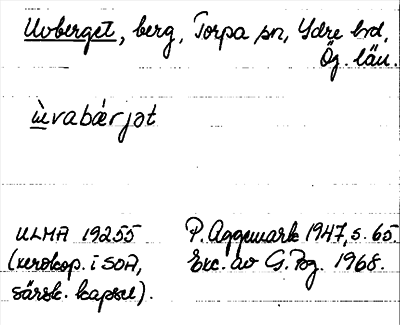 Uvberget, berg, Torpa sn, Ydre hd,
Ög. län.
ùvabǽrjət
ULMA 19255
(xerokop. i SOA,
särsk. kapsel).
P. Aggemark 1947, s. 65.
Exc. av G. Pog. 1968.